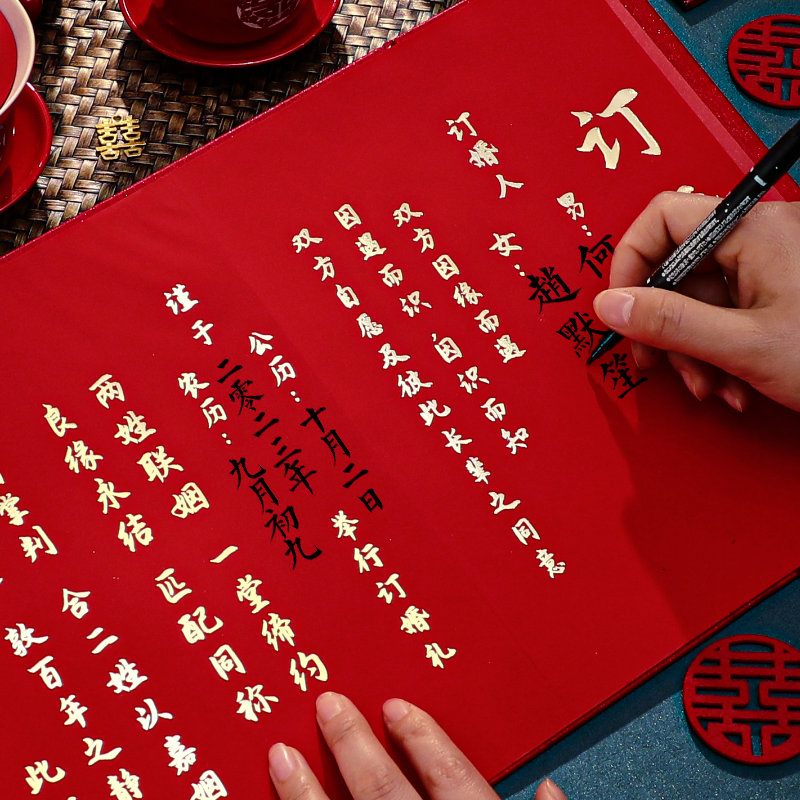 订
订婚人
男：何
女：趙默笙
双方因缘而遇
因遇而识 因识而知
双方自愿及彼此长辈之同意
谨于
公历：二零二三年十月二日
农历：九月初九
举行订婚礼
两姓联姻 一堂缔约
良缘永结 匹配同称
掌判 合二姓以嘉姻
敦百年之静
此